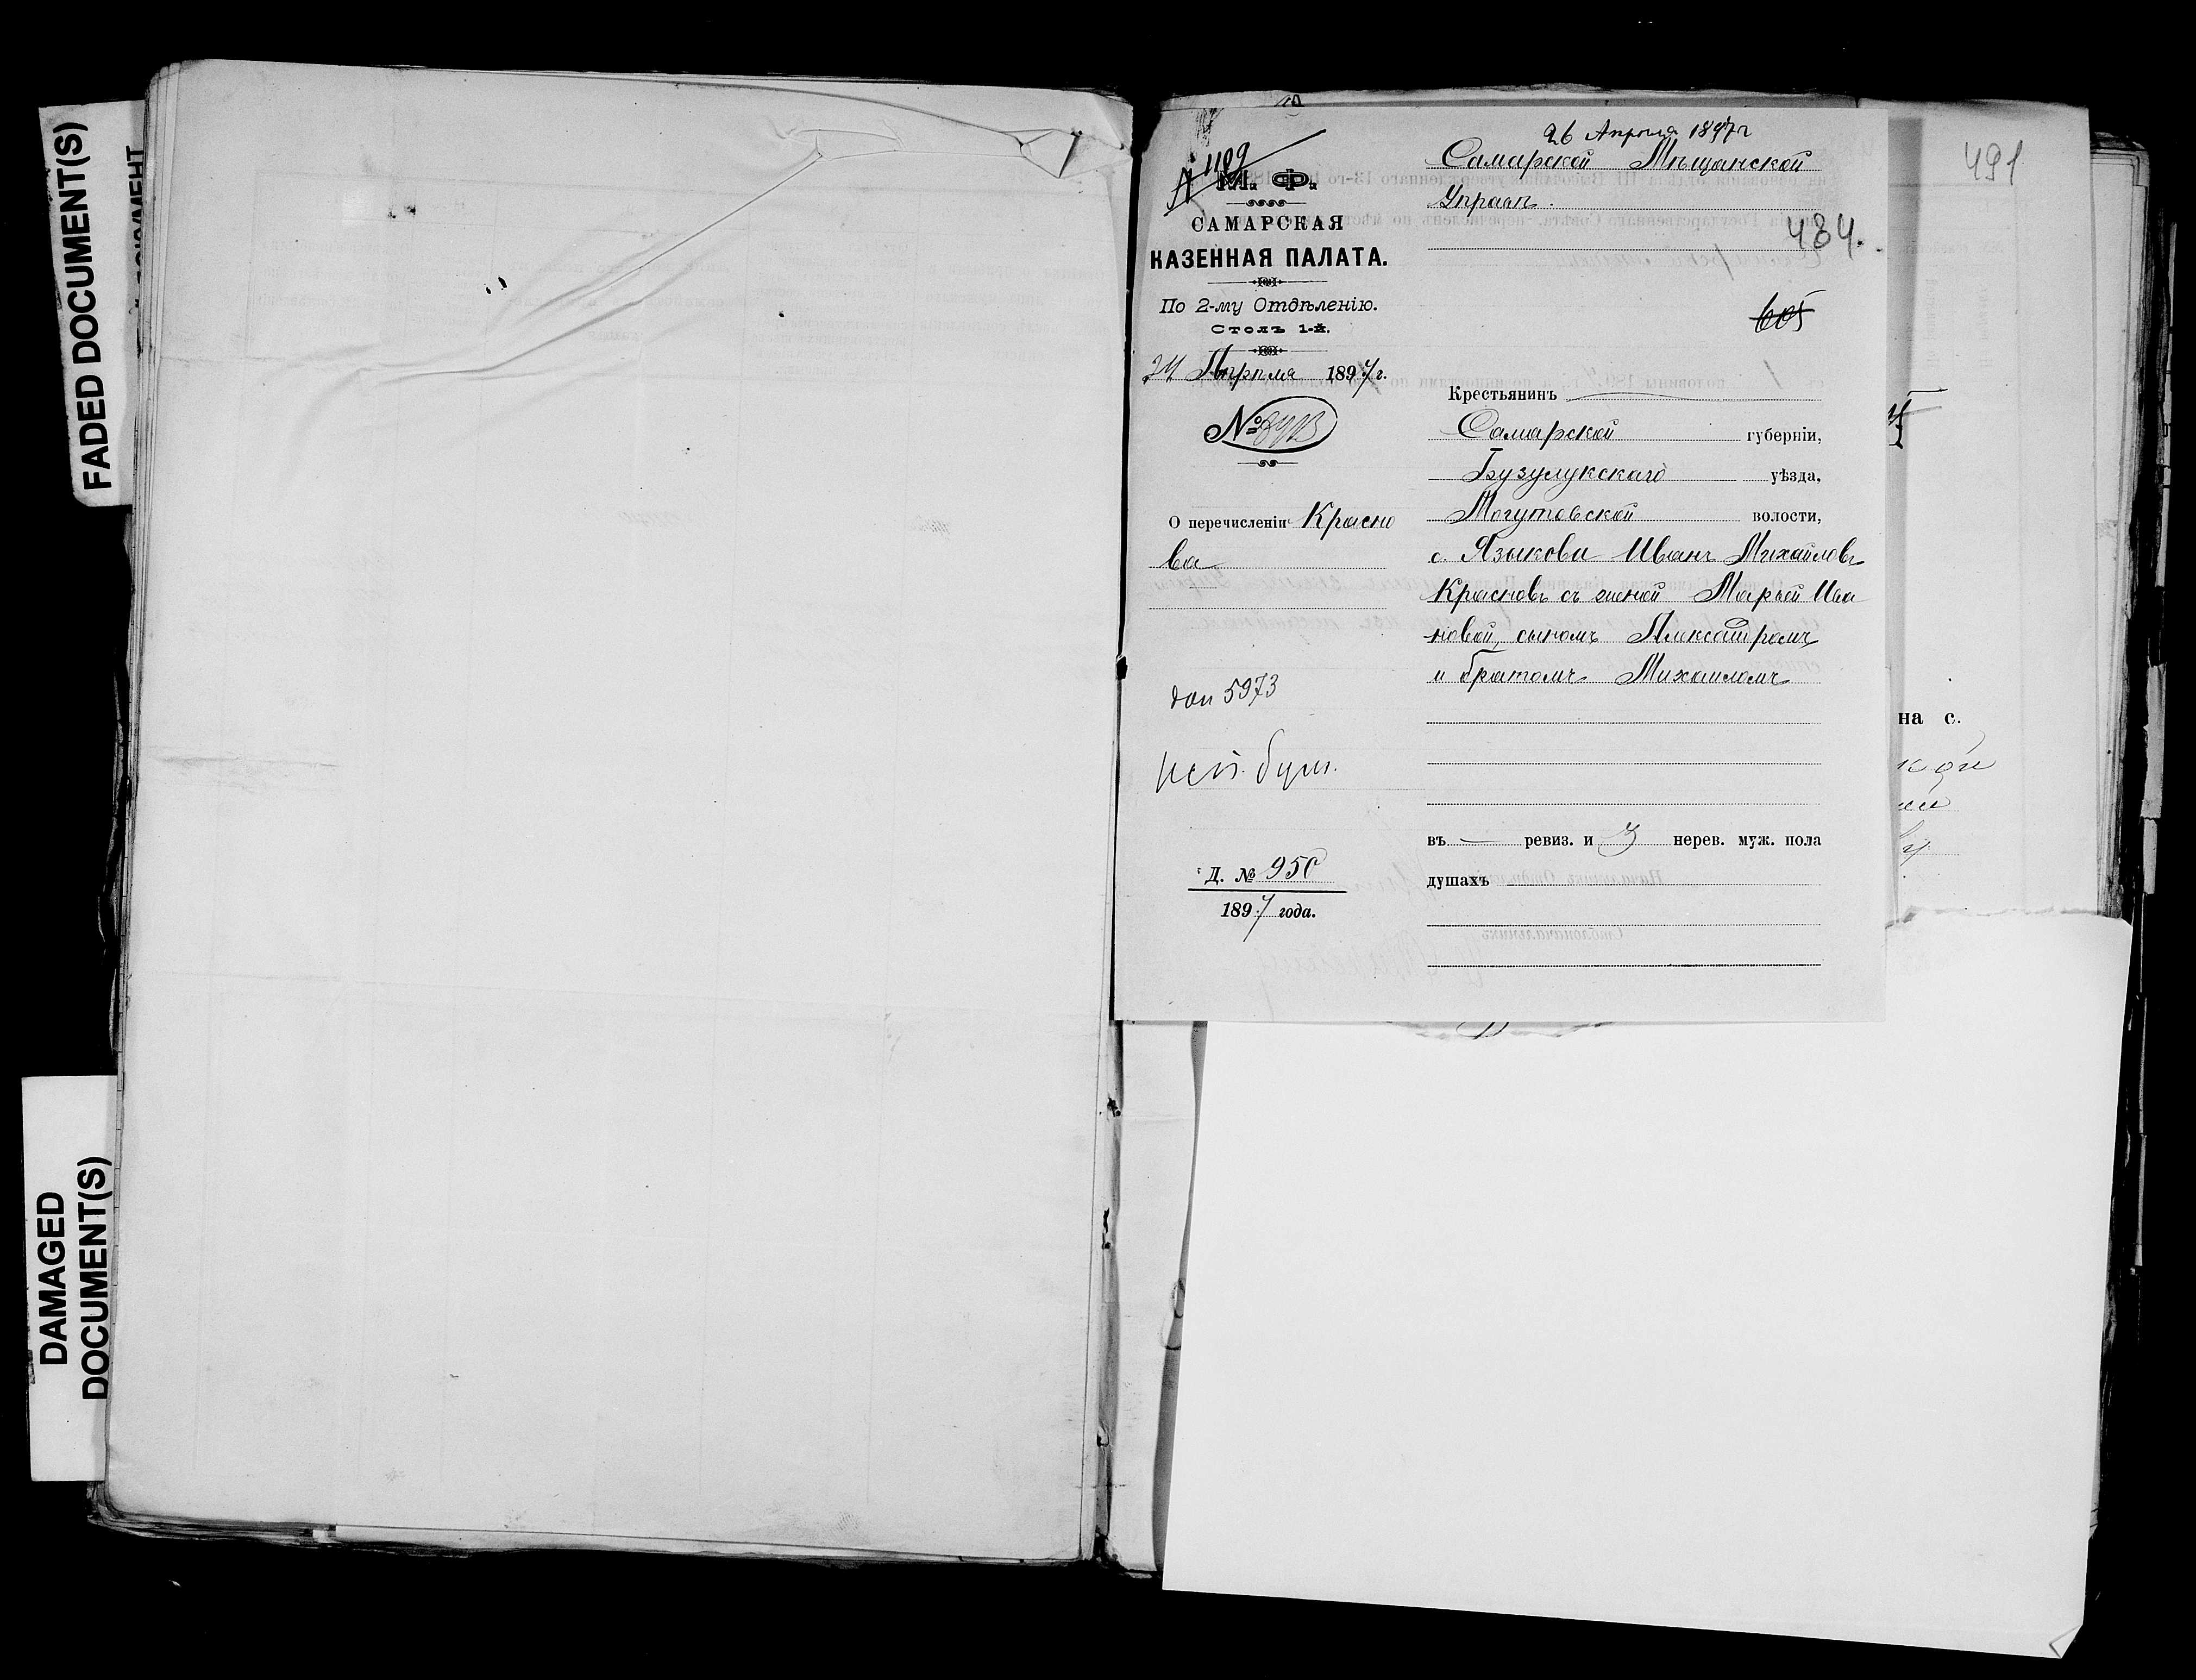 FADED DOCUMENT(S)
DAMAGED
DOCUMENT(S)
491
№ 1189
М. Ф.
САМАРСКАЯ
КАЗЕННАЯ ПАЛАТА.
По 2-му Отдѣленію.
Столъ 1-й.
24 Апрѣля 1897 г.
№
О перечисленіи Красно
ва
доп 5973
Д. № 950
1897 года.
26 Апрѣля 1897 г
Самарской Мѣщанской
Управѣ.
484.
605
Крестьянинъ
Самарской губерніи,
Бузулукскаго уѣзда,
Могутовской волости,
с. Языкова Иванъ Михайловъ
Красновъ съ женой Марьей Ива
новой, сыномъ Александромъ
и братомъ Михаиломъ
въ — ревиз. и 3 нерев. муж. пола
душахъ
на с.